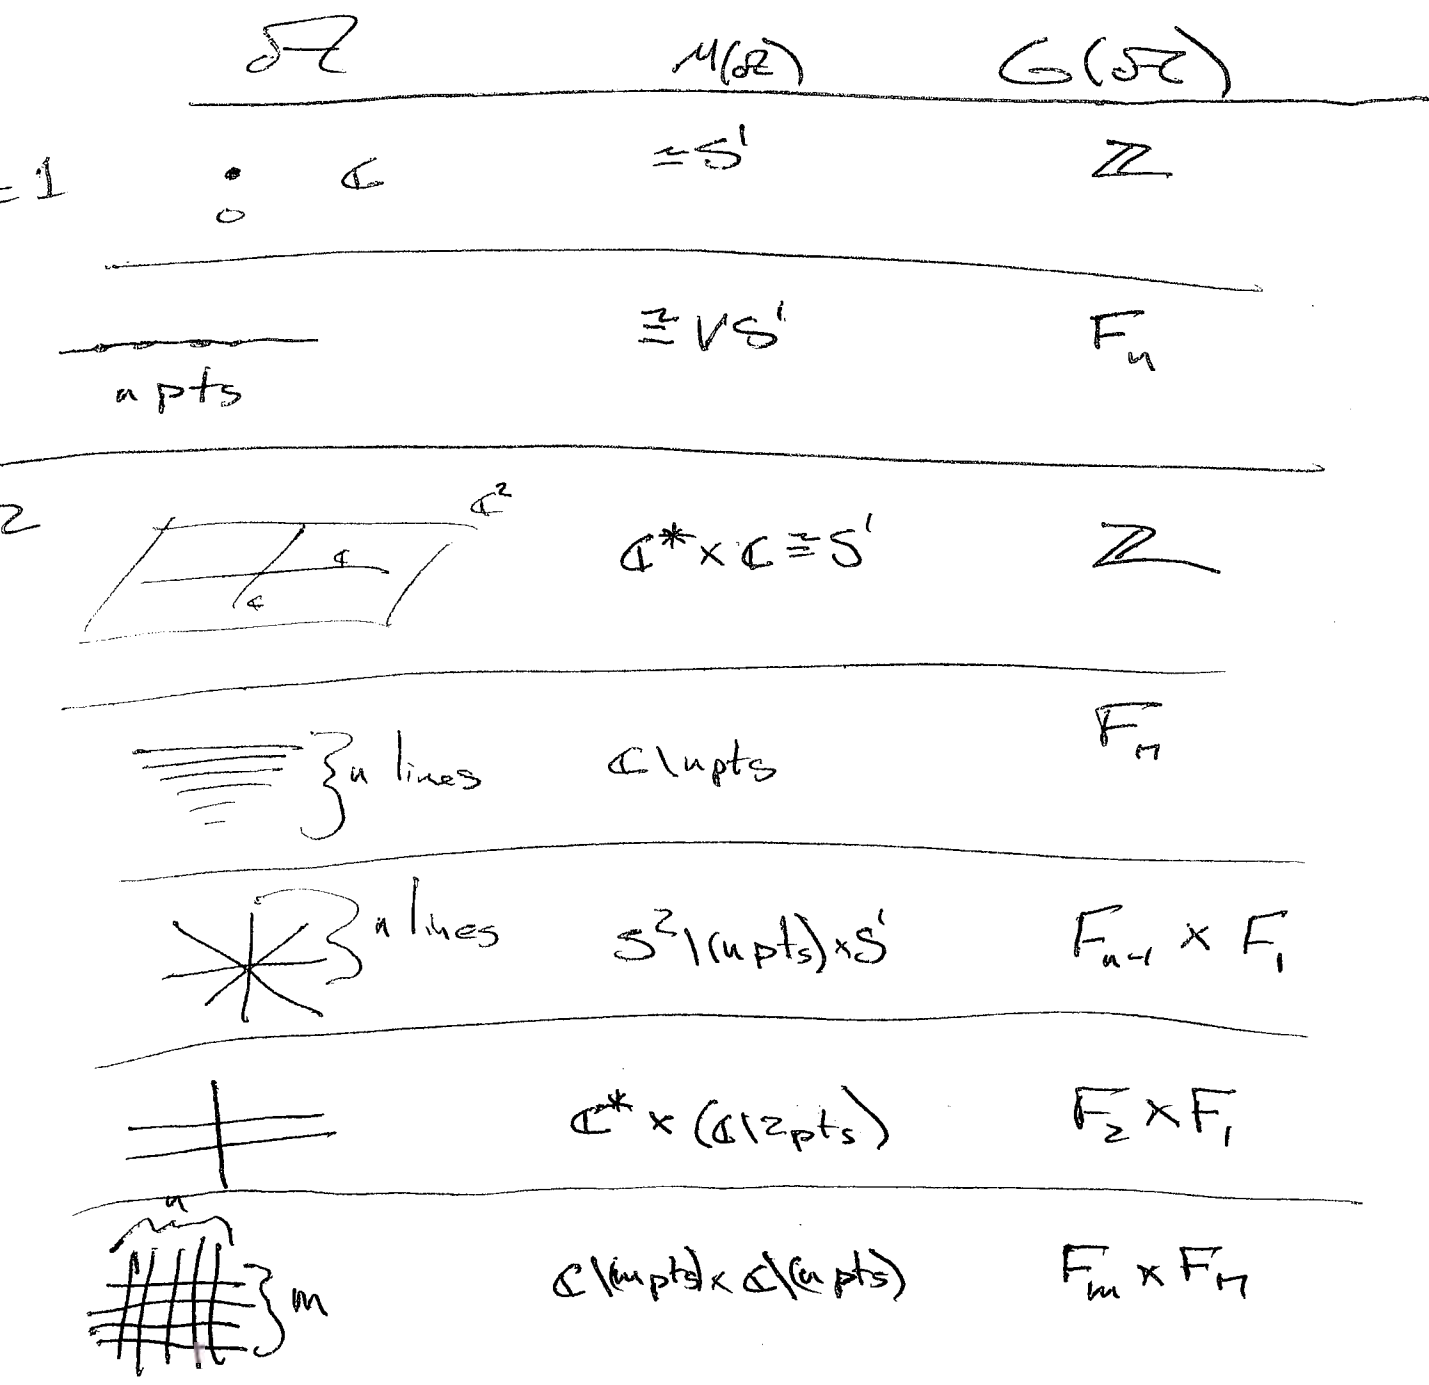 𝒜 M(𝒜) G(𝒜)
= 1 0 ℂ ≃ S¹ ℤ
n pts ≅ ∨ S¹ Fₙ
2 ℂ² ℂ ℂ ℂ* × ℂ ≅ S¹ ℤ
n lines ℂ \ n pts Fₙ
n lines S² \ (n pts) × S¹ Fₙ₋₁ × F₁
ℂ* × (ℂ \ 2 pts) F₂ × F₁
n m ℂ \ (m pts) × ℂ \ (n pts) Fₘ × Fₙ